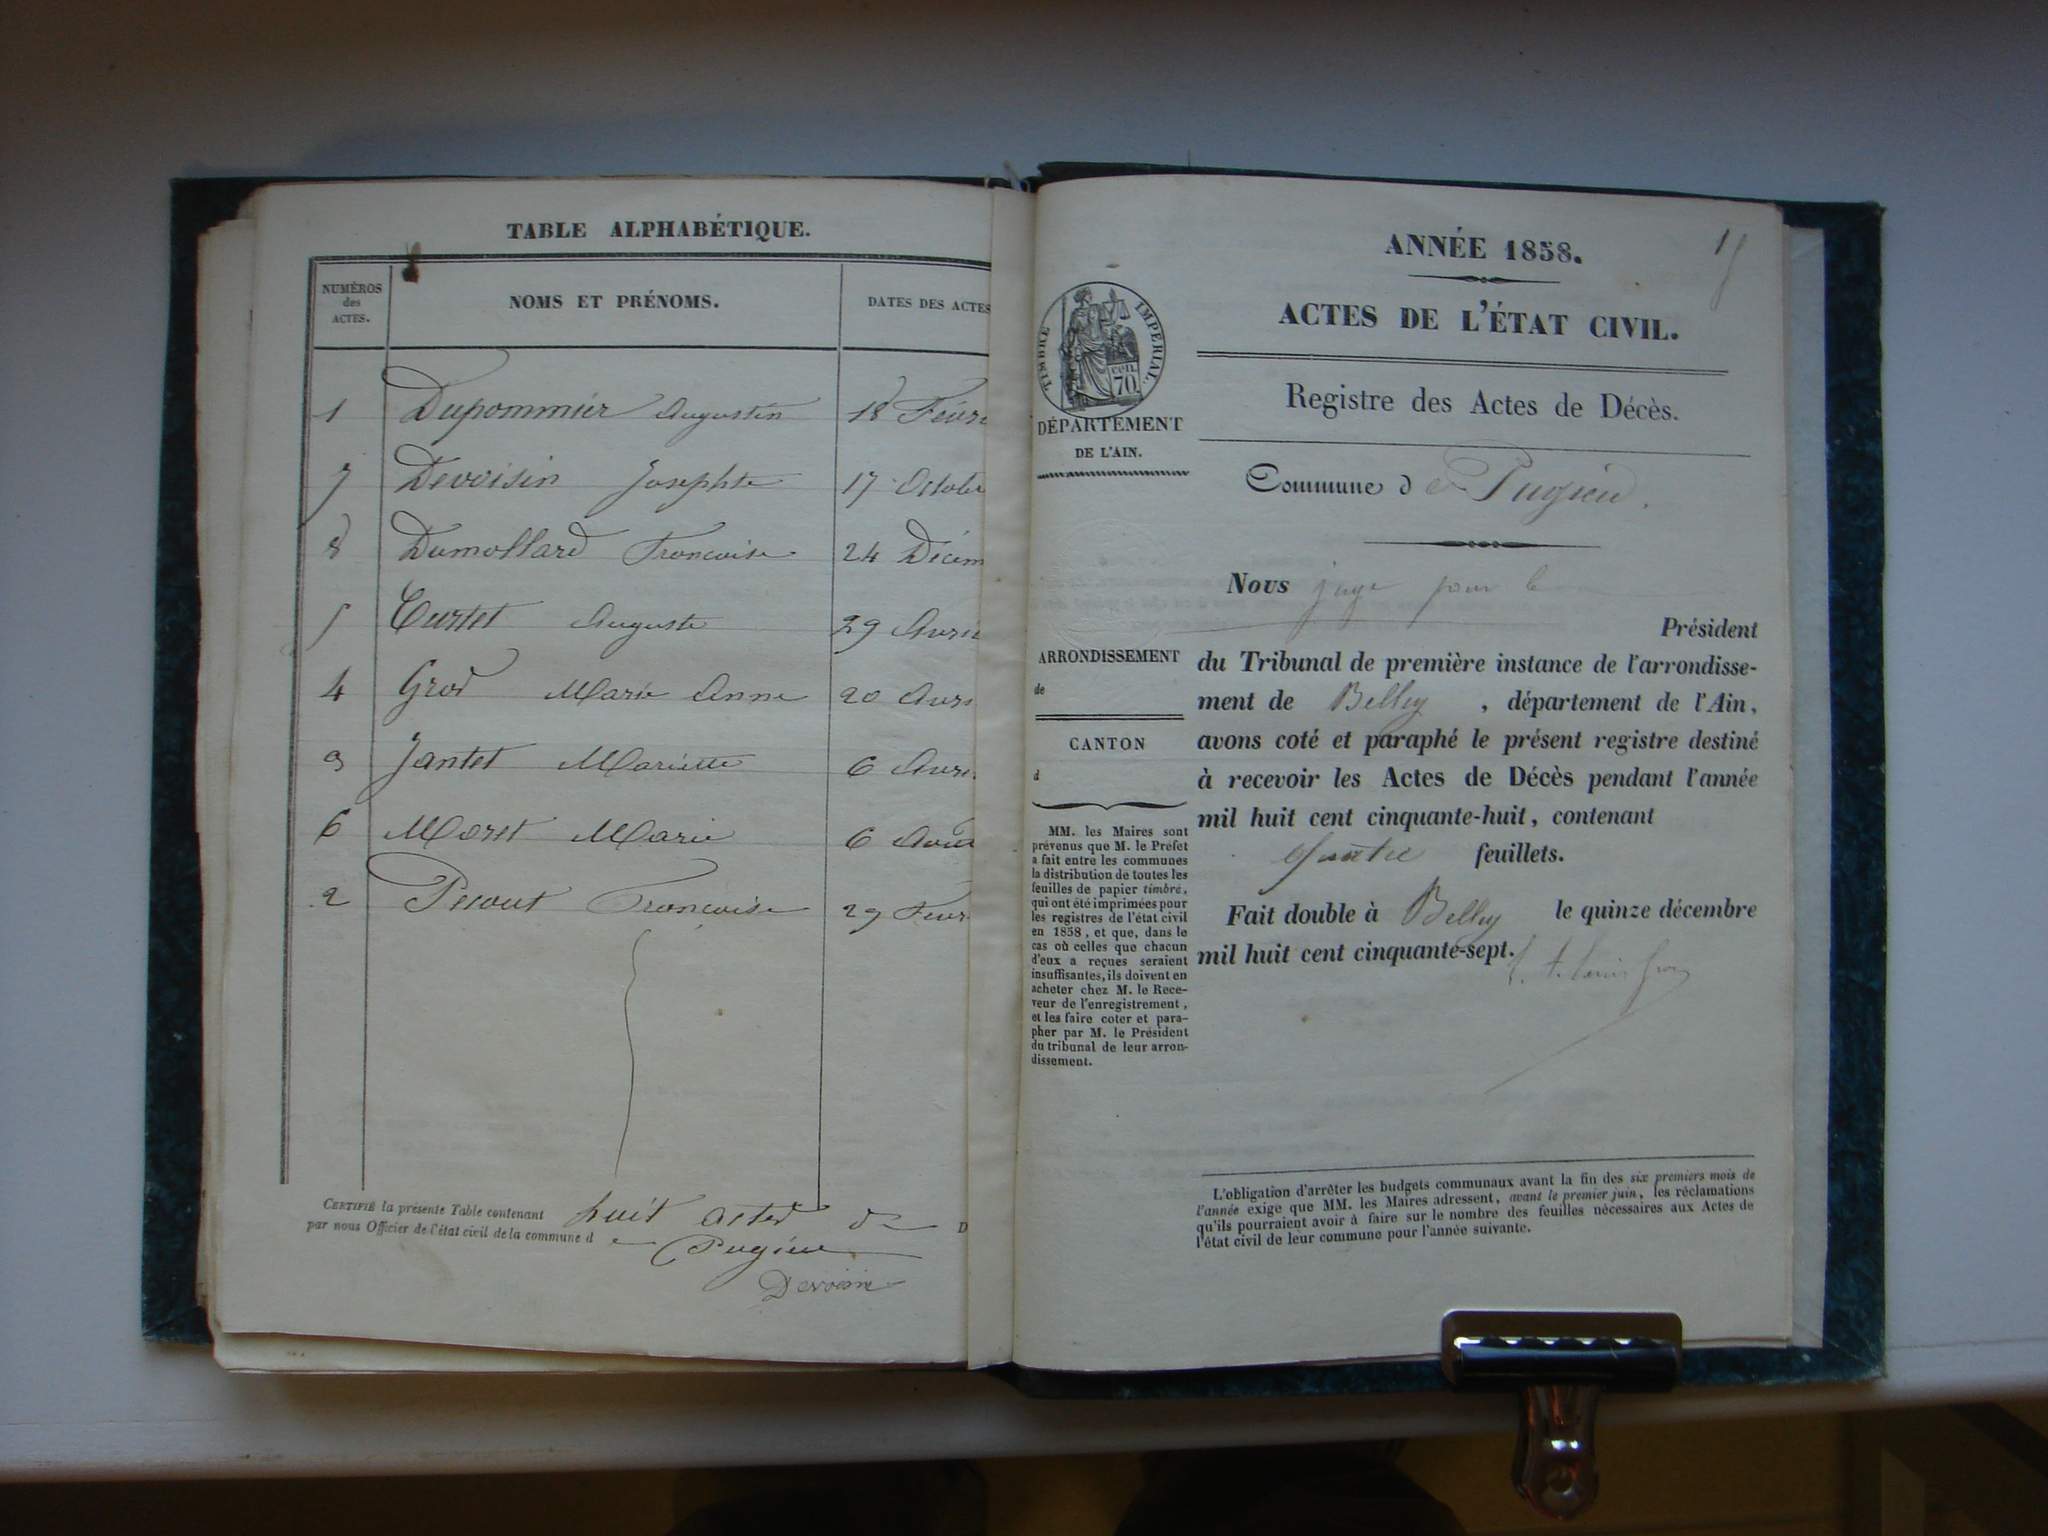 TABLE ALPHABÉTIQUE.
NUMÉROS des ACTES.
NOMS ET PRÉNOMS.
DATES DES ACTES
1 Dupommier Augustin 18 Févri
7 Devoisin Josephte 17 Octobr
8 Dumollard Francoise 24 Décem
5 Curtet Auguste 29 Avri
4 Grod Marie Anne 20 Avri
3 Jantet Mariette 6 Avri
6 Moret Marie 6 Aout
2 Francoise 29 Fevr
CERTIFIÉ la présente Table contenant huit actes de D
par nous Officier de l'état civil de la commune d e Pugieu
Devoisin
15
ANNÉE 1858.
ACTES DE L'ÉTAT CIVIL.
Registre des Actes de Décès.
TIMBRE IMPÉRIAL.
70 cen.
DÉPARTEMENT
DE L'AIN.
Commune d e Pugieu.
Nous juge pour le
Président
du Tribunal de première instance de l'arrondisse-
ment de Belley , département de l'Ain,
avons coté et paraphé le présent registre destiné
à recevoir les Actes de Décès pendant l'année
mil huit cent cinquante-huit, contenant
quatre feuillets.
Fait double à Belley le quinze décembre
mil huit cent cinquante-sept.
ARRONDISSEMENT
de
CANTON
d
MM. les Maires sont
prévenus que M. le Préfet
a fait entre les communes
la distribution de toutes les
feuilles de papier timbré,
qui ont été imprimées pour
les registres de l'état civil
en 1858, et que, dans le
cas où celles que chacun
d'eux a reçues seraient
insuffisantes, ils doivent en
acheter chez M. le Rece-
veur de l'enregistrement,
et les faire coter et para-
pher par M. le Président
du tribunal de leur arron-
dissement.
L'obligation d'arrêter les budgets communaux avant la fin des six premiers mois de
l'année exige que MM. les Maires adressent, avant le premier juin, les réclamations
qu'ils pourraient avoir à faire sur le nombre des feuilles nécessaires aux Actes de
l'état civil de leur commune pour l'année suivante.